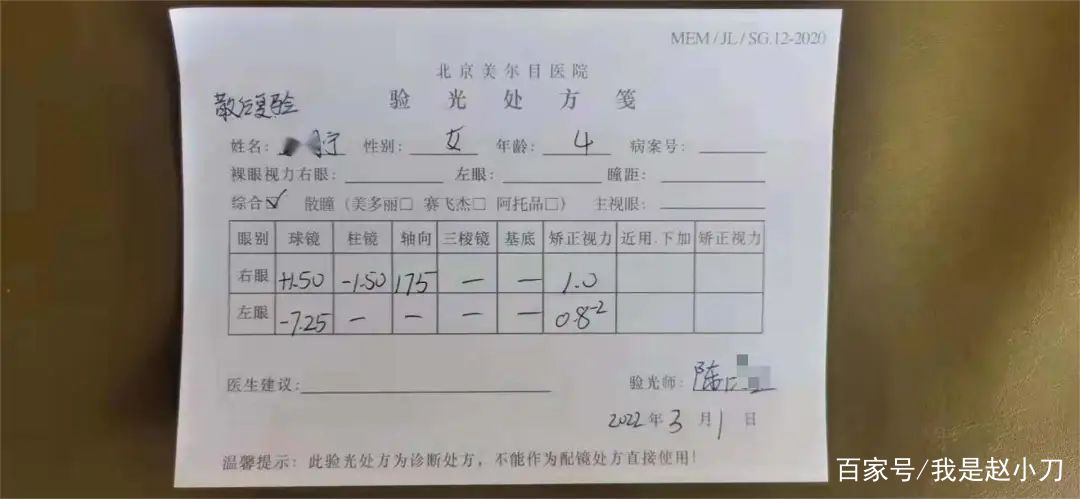 MEM/JL/SG.12-2020
北京美尔目医院
散后复验
验光处方笺
姓名: 宁 性别: 女 年龄: 4 病案号:
裸眼视力右眼: 左眼: 瞳距:
综合☑ 散瞳(美多丽□ 赛飞杰□ 阿托品□) 主视眼:
眼别 球镜 柱镜 轴向 三棱镜 基底 矫正视力 近用.下加 矫正视力
右眼 +1.50 -1.50 175 — — 1.0
左眼 -7.25 — — — — 0.8-2
医生建议: 验光师: 陈
2022年3月1日
温馨提示: 此验光处方为诊断处方，不能作为配镜处方直接使用!
百家号/我是赵小刀